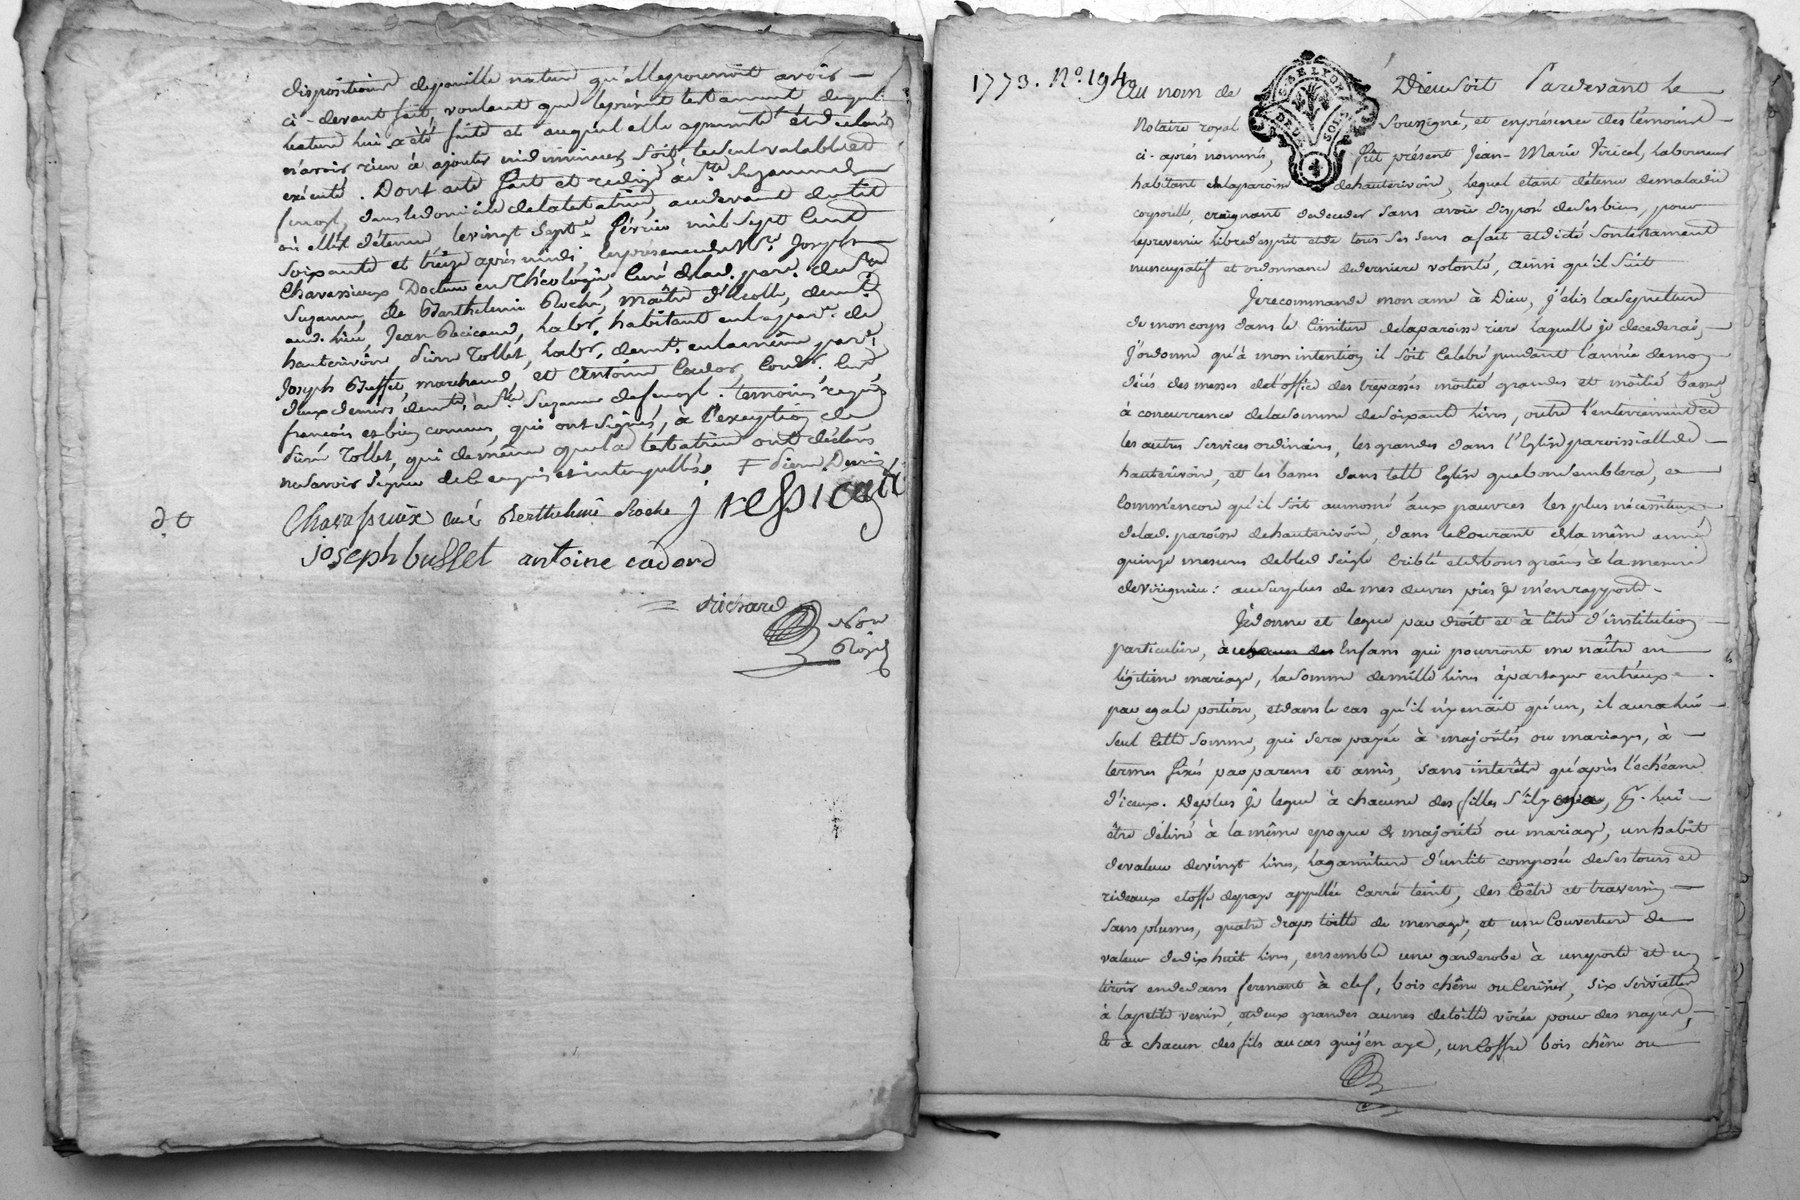 dispositions de pareille nature qu'elle pourroit avoir
ci-devant fait, voulant que le présent testament duquel
lecture lui a été faite et auquel elle a persisté et déclaré
n'avoir rien à ajouter ni diminuer soit le seul valable et
exécuté. Dont acte fait et rédigé à Ste Suzanne
dans le domicile de la testatrice, au devant du lit
où elle est détenue le vingt sept février mil sept cent
soixante et treize après midi, en présence de Mre Joseph
Chavassieux Docteur en Théologie, Curé de lad. par. de Ste
Suzanne, de Barthelemi Roche, maître d'école, demt
aud. lieu, Jean habr. habitant en la par. de
hauterivoire Pierre Tollet, habr. demt. en la même par.
Joseph Buffet marchand, et Antoine Cador, Cord. Les
deux derniers demts. à Ste Suzanne témoins requis
françois et bien connus, qui ont signés, à l'exception de
Pierre Tollet, qui de même que la testatrice ont déclaré
ne savoir signer de ce enquis et interpellés. Pierre
Chavassieux curé Berthelmi Roche j respicaud
dt
joseph buffet antoine cadord
Richard
Nore
Royal
1773. No. 194
Au nom de Dieu soit Pardevant le
Notaire royal soussigné, et en présence des témoins
GEN. DE LYON
DEUX SOLS
ci-après nommés, fût présent Jean-Marie Viricel, Laboureur
habitant en la paroisse de hauterivoire, lequel étant détenu de maladie
corporelle, craignant de deceder sans avoir disposé de ses biens, pour
le prevenir libre d'esprit et de tous ses sens a fait et dicté son testament
nuncupatif et ordonnance de derniere volonté, ainsi qu'il suit
Je recommande mon ame à Dieu, j'élis la sepulture
de mon corps dans le cimitiere de la paroisse riere laquelle je decederai,
J'ordonne qu'à mon intention il soit celebré pendant l'année de mon
décès des messes de l'office des trepassés moitié grandes et moitié basses
à concurrence de la somme de soixante livres, outre l'enterrement et
les autres services ordinaires, les grandes dans l'Eglise paroissialle de
hauterivoire, et les basses dans telle Eglise que bon semblera, et
comm'encore qu'il soit aumoné aux pauvres les plus nécessiteux
de lad. paroisse de hauterivoire, dans le courant de la même année
quinze mesures de bled seigle criblé et de bons grains à la mesure
de Virigneux: au surplus de mes œuvres pies je m'en rapporte.
Je donne et legue par droit et à titre d'institution
particuliere, à chacun des Enfans qui pourront me naître en
légitime mariage, la somme de mille livres à partager entr'eux
par egale portion, et dans le cas qu'il n'y en ait qu'un, il aura lui
seul cette somme, qui sera payée à majorités ou mariages, à
termes fixés par parens et amis, sans interêts qu'après l'échéance
d'iceux. De plus je legue à chacune des filles s'il y en a, pr. lui
être délivré à la même epoque de majorité ou mariage, un habit
de valeur de vingt livres, la garniture d'un lit composée de ses tours et
rideaux etoffe de pays appellée carré teint, des coëtre et traversin
sans plumes, quatre draps toille de menage, et une couverture de
valeur de dix huit livres, ensemble une garderobe à une porte et un
tiroir en dedans fermant à clef, bois chêne ou cerisier, six serviettes
à la petite venise, et deux grandes aunes de toille virée pour des napes,
et à chacun des fils au cas que j'en aye, un coffre bois chêne ou